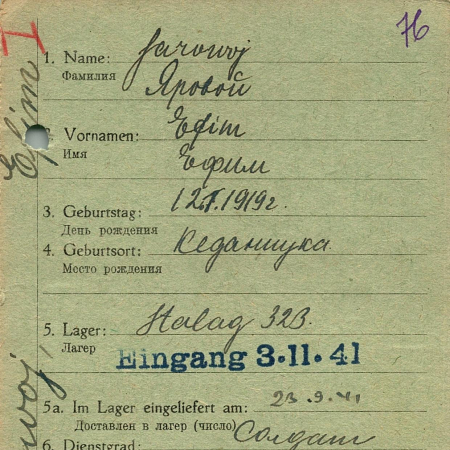 76
1. Name: Jarowoj
Фамилия Яровой
2. Vornamen: Efim
Имя Ефим
3. Geburtstag: 12.I.1919г.
День рождения
4. Geburtsort:
Место рождения
5. Lager: Stalag 323.
Лагер
Eingang 3.11.41
5a. Im Lager eingeliefert am: 23.9.41
Доставлен в лагер (число)
6. Dienstgrad: Солдат
Efim